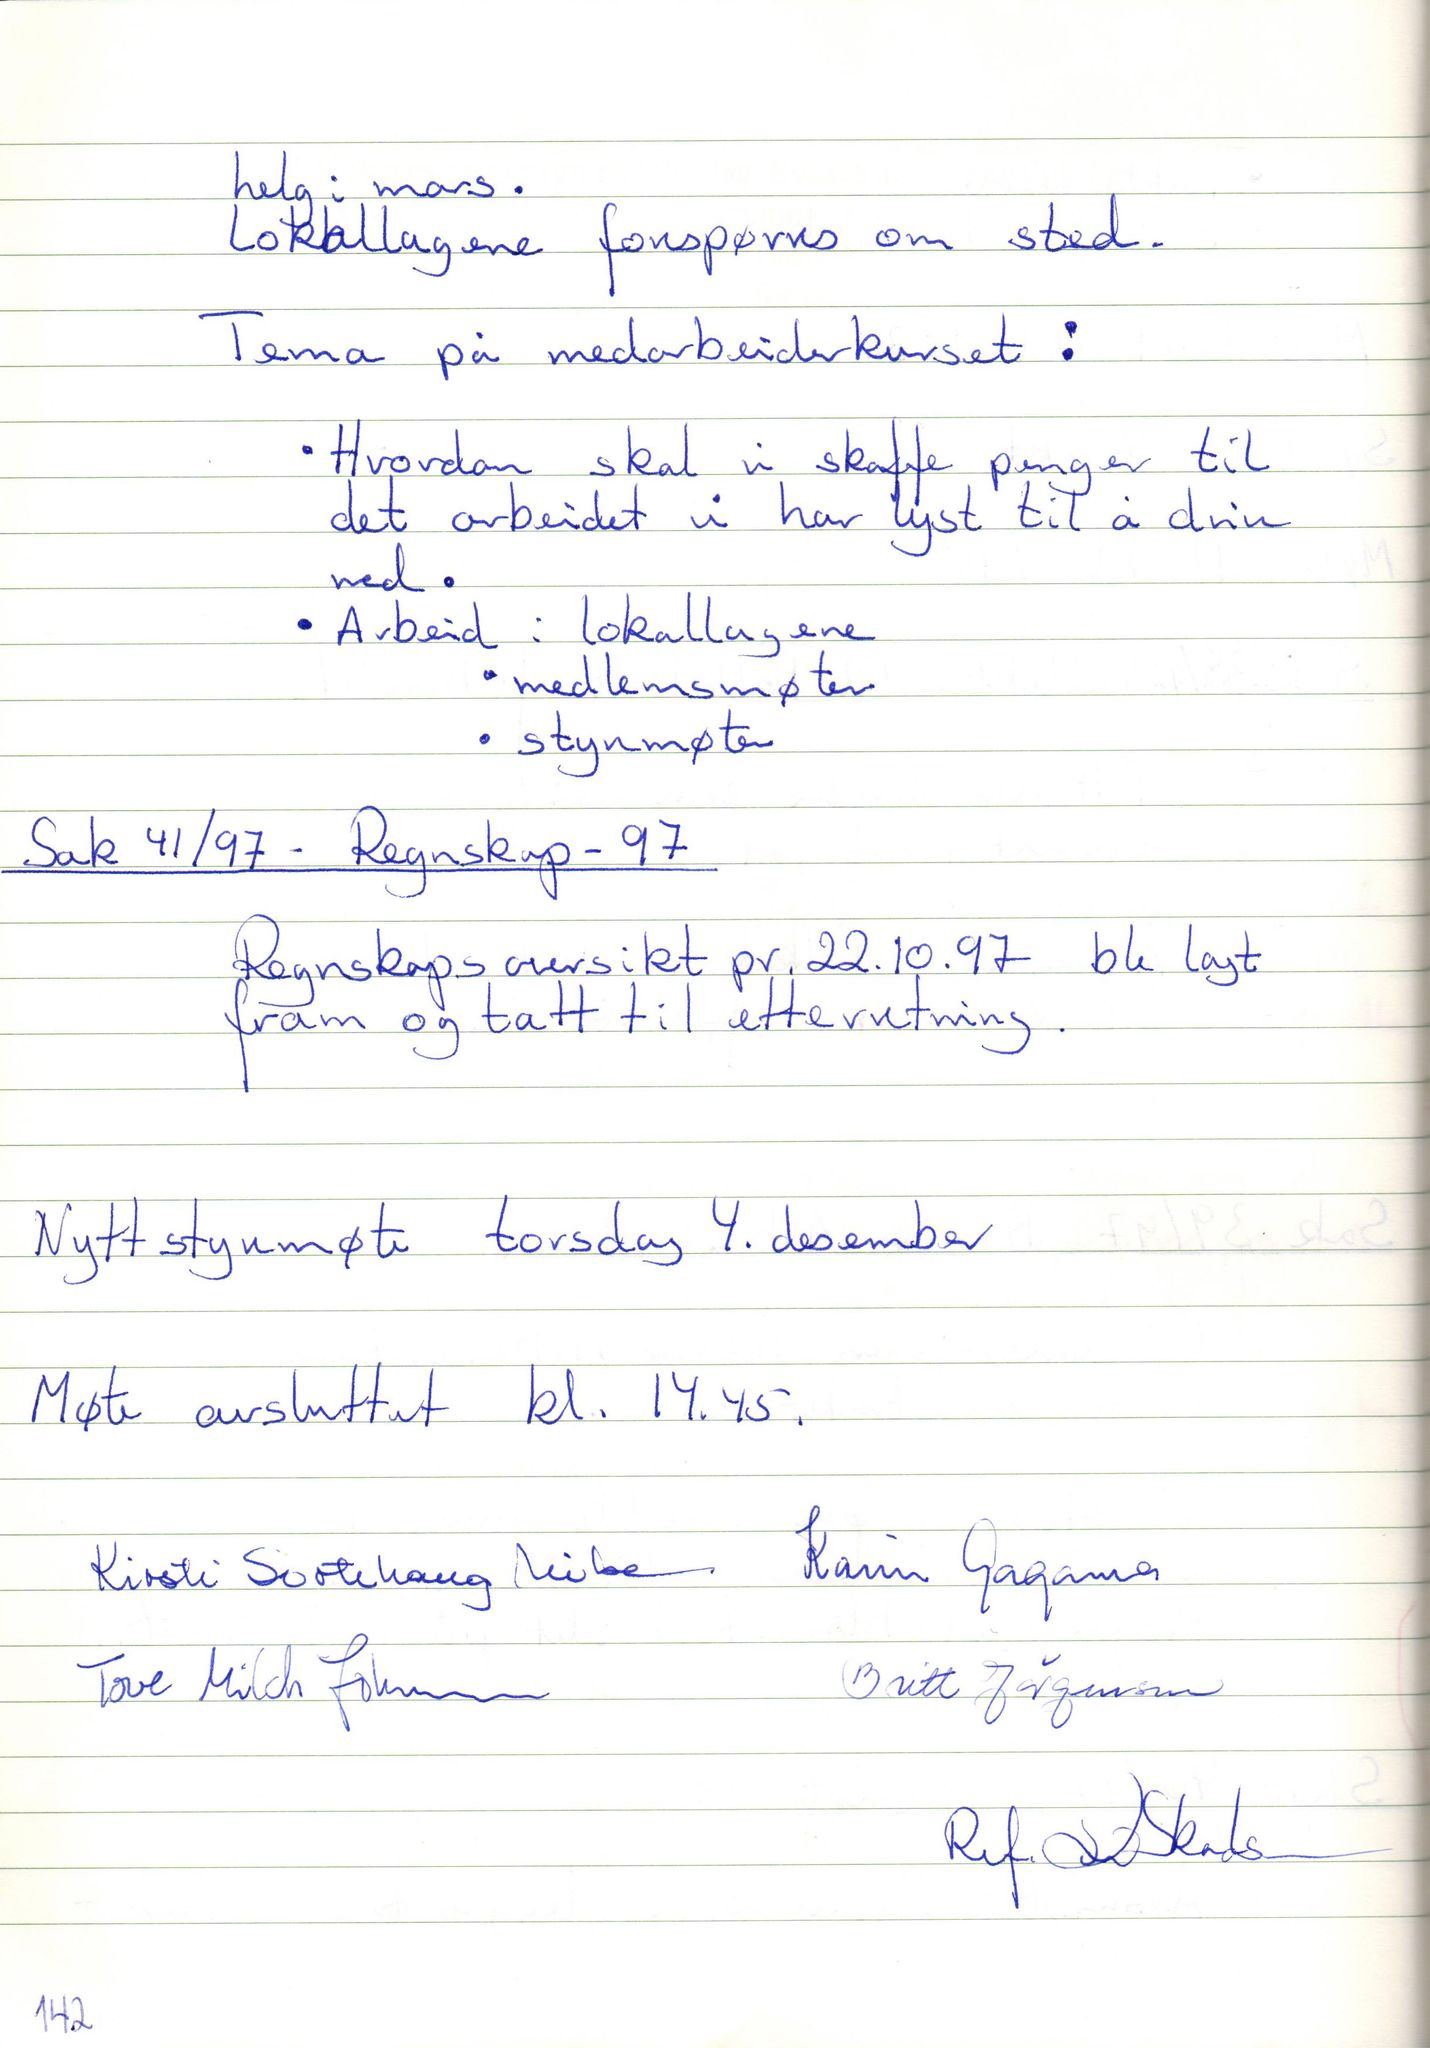 helg i mars.
Lokallagene forespørres om sted.
Tema på medarbeiderkurset :
• Hvordan skal vi skaffe penger til
det arbeidet vi har lyst til å drive
med.
• Arbeid i lokallagene
• medlemsmøter
• styremøter
Sak 41/97 - Regnskap - 97
Regnskapsoversikt pr. 22.10.97 ble lagt
fram og tatt til etterretning.
Nytt styremøte torsdag 4. desember
Møte avsluttet kl. 14.45.
Kirsti Sortehaug Karin
Tove Milch Britt Jørgensen
Ref.
142